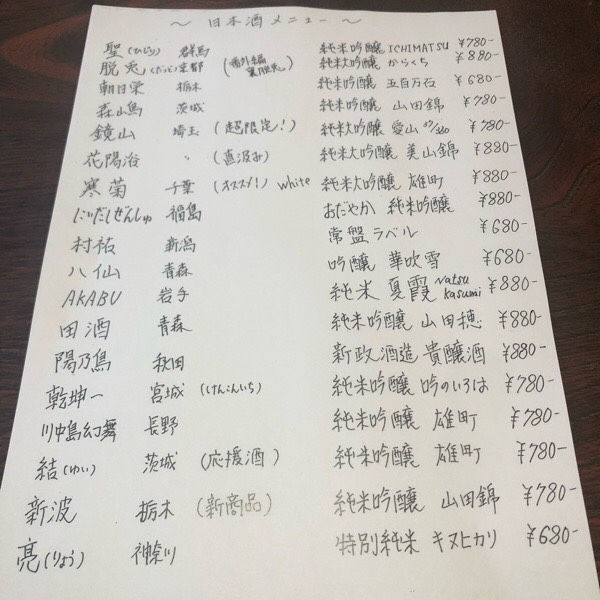 ～ 日本酒メニュー ～
聖(ひじり) 群馬 純米吟醸 ICHIMATSU ¥780-
脱兎(だっと)京都 (番外編 裏脱兎) 純米大吟醸 からくち ¥880-
朝日栄 栃木 純米吟醸 五百万石 ¥680-
森嶋 茨城 純米吟醸 山田錦 ¥780-
鏡山 埼玉 (超限定!) 純米大吟醸 愛山 ¥780-
花陽浴 〃 (直汲み) 純米大吟醸 美山錦 ¥880-
寒菊 千葉 (オススメ!) White 純米大吟醸 雄町 ¥880-
にいだしぜんしゅ 福島 おだやか 純米吟醸 ¥880-
村祐 新潟 常盤ラベル ¥680-
八仙 青森 吟醸 華吹雪 ¥680-
AKABU 岩手 純米 夏霞 Natsu kasumi ¥880-
田酒 青森 純米吟醸 山田穂 ¥880-
陽乃鳥 秋田 新政酒造 貴醸酒 ¥880-
乾坤一 宮城 (けんこんいち) 純米吟醸 吟のいろは ¥780-
川中島幻舞 長野 純米吟醸 雄町 ¥780-
結(ゆい) 茨城 (応援酒) 純米吟醸 雄町 ¥780-
新波 栃木 (新商品) 純米吟醸 山田錦 ¥780-
亮(りょう) 神奈川 特別純米 キヌヒカリ ¥680-